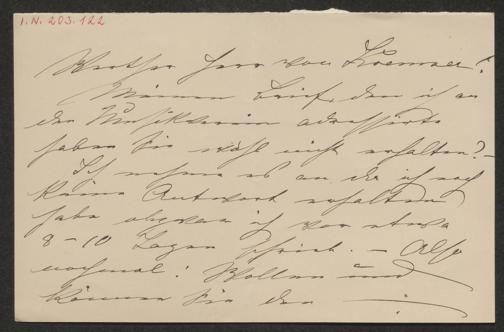 I.N. 203.122
Werther Herr von Kremser!
Meinen Brief, den ich an
den Musikverein adressirte
haben Sie wohl nicht erhalten? –
Ich nehme es an da ich noch
keine Antwort erhalten
habe obzwar ich vor etwa
8–10 Tagen schrieb. – Also
nochmal: Wollen und
können Sie den